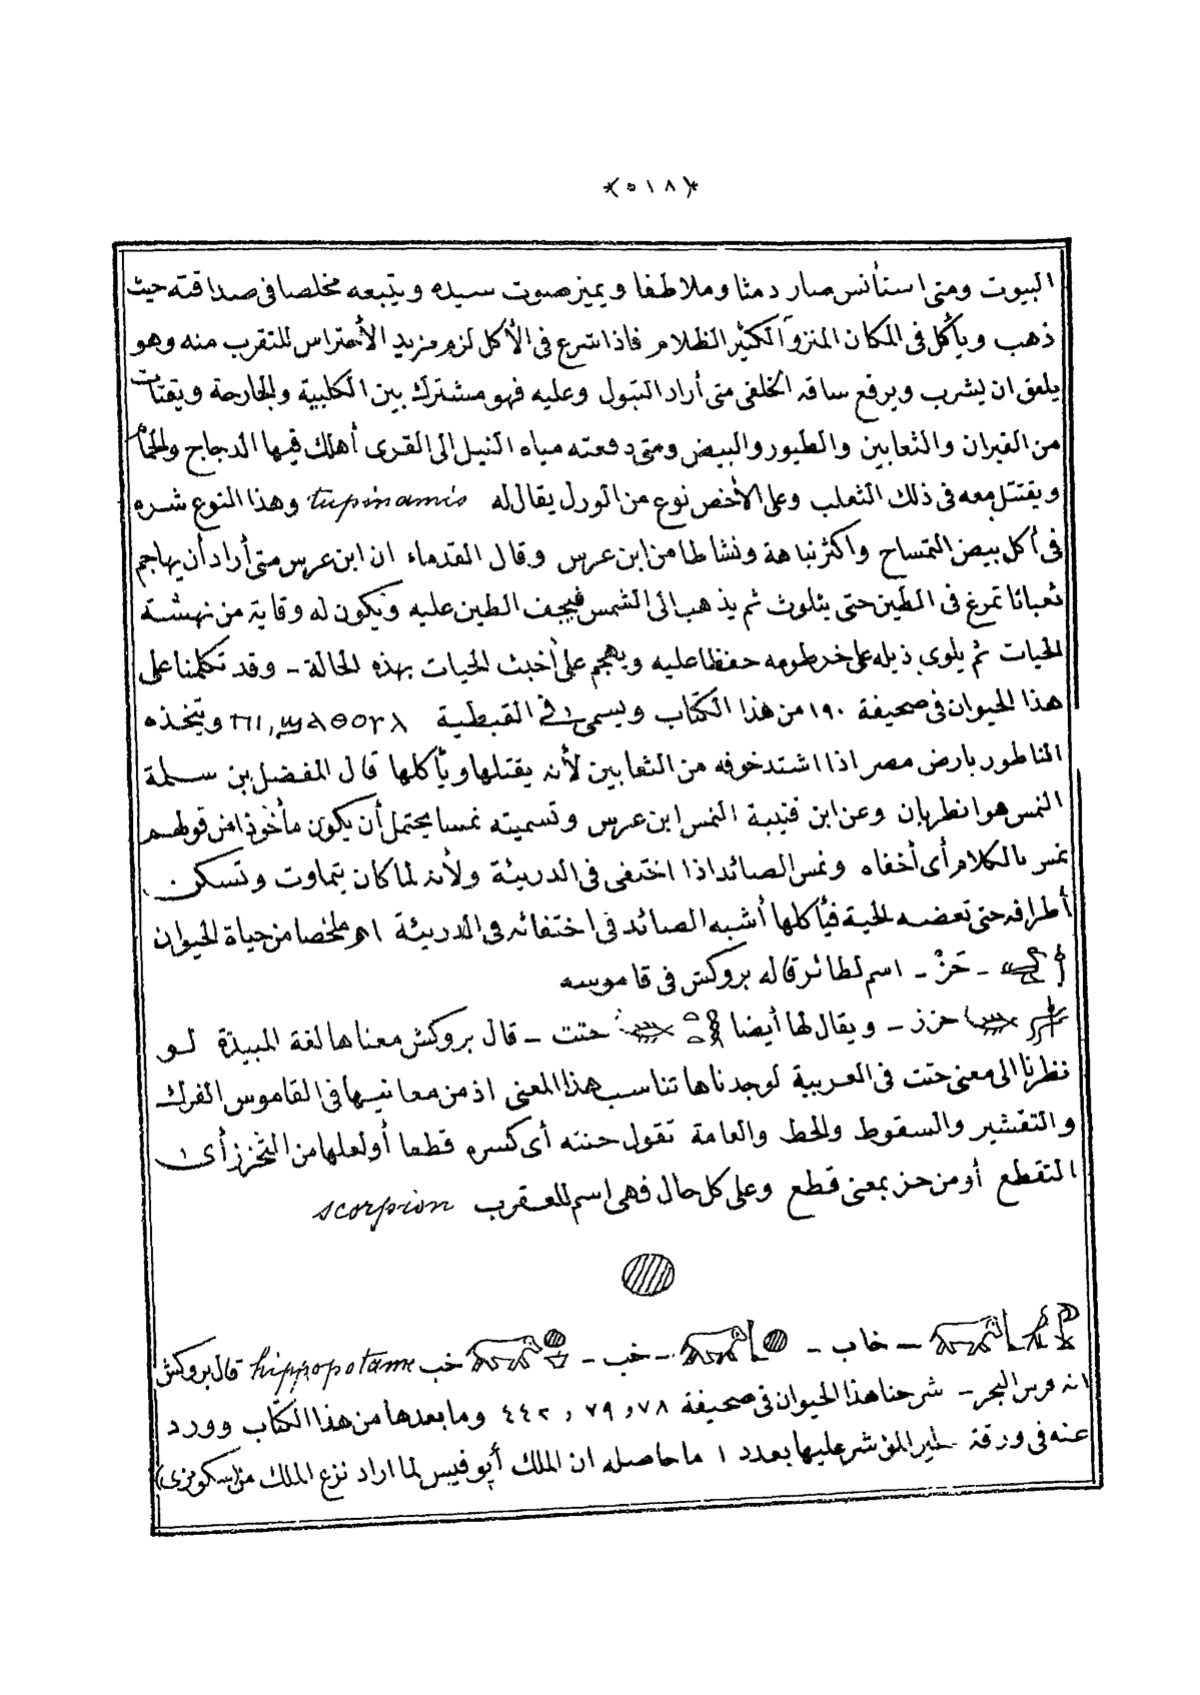 ﴿٥١٨﴾
البيوت ومتى استأنس صار دمثا وملاطفا ويميز صوت سيده ويتبعه مخلصا فى صداقته حيث
ذهب ويأكل فى المكان المنزو الكثير الظلام فاذا شرع فى الأكل لزم مزيد الأحتراس للتقرب منه وهو
يلعق ان ليشرب ويرفع ساقه الخلفى متى أراد التبول وعليه فهو مشترك بين الكلبية والجارحة ويقتات
من الفيران والثعابين والطيور والبيض ومتى دفعته مياه النيل الى القرى أهلك فيها الدجاج والحمام
ويقتتل معه فى ذلك الثعلب وعلى الأخص نوع من الورل يقال له tupinamis وهذا النوع شره
فى أكل بيض التمساح واكثر نباهة ونشاطا من ابن عرس وقال القدماء ان ابن عرس متى أراد أن يهاجم
ثعبانا تمرغ فى الطين حتى يتلوث ثم يذهب الى الشمس فيجف الطين عليه ويكون له وقاية من نهشة
الحيات ثم يلوى ذيله على خرطومه حفظا عليه ويهجم على أخبث الحيات بهذه الحالة - وقد تكلمنا على
هذا الحيوان فى صحيفة ١٩٠ من هذا الكتاب ويسمى فى القبطية ⲡⲓ, ϣⲁⲑⲟⲩⲗ ويتخذه
الناطور بارض مصر اذا اشتد خوفه من الثعابين لأنه يقتلها ويأكلها قال المفضل بن سلمة
النمس هو انظربان وعن ابن قتيبة النمس ابن عرس وتسميته نمسا يحتمل أن يكون مأخوذا من قولهم
نمس بالكلام أى أخفاه ونمس الصائد اذا اختفى فى الدريئة ولأنه لما كان يتماوت وتسكن
أطرافه حتى تعضه الحية فيأكلها أشبه الصائد فى اختفائه فى الدريئة اهـ ملخصا من حياة الحيوان
- حَزْ - اسم لطائر قاله بروكش فى قاموسه
حزز - ويقال لها أيضا حتت - قال بروكش معناها لغة المبيدة لو
نظرنا الى معنى حتت فى العربية لوجدناها تناسب هذا المعنى اذ من معانيها فى القاموس الفرك
والتقشير والسقوط والحط والعامة تقول حتته أى كسره قطعا أو لعلها من التحزز أى
التقطع أو من حز بمعنى قطع وعلى كل حال فهى اسم للعقرب scorpion
- خاب - - خب - خب hippopotame قال بروكش
انه فرس البحر - شرحنا هذا الحيوان فى صحيفة ٧٨ و ٧٩ و ٤٤٢ وما بعدها من هذا الكتاب وورد
عنه فى ورقة المؤشر عليها بعدد ١ ما حاصله ان الملك أپوفيس لما اراد نزع الملك من (سكونزى)